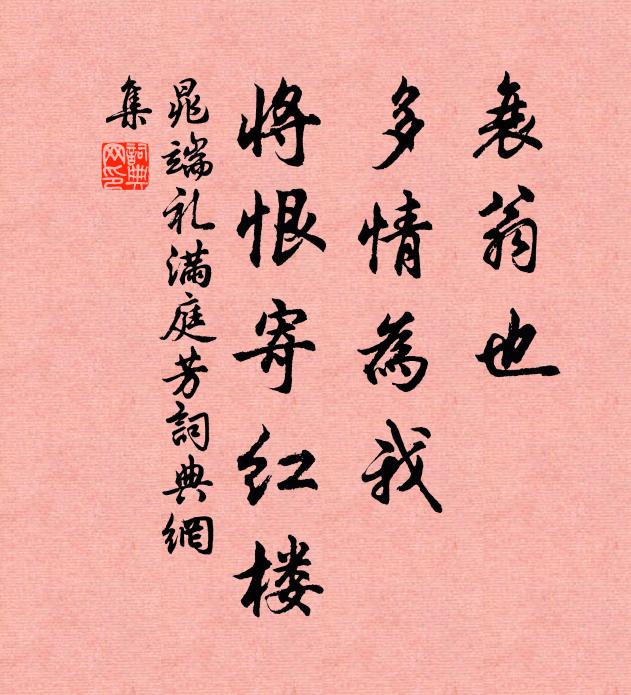 衰翁也
多情為我
将恨寄红楼
晁端礼满庭芳詞典網
集
詞典網印